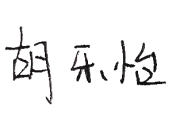 胡乐怡